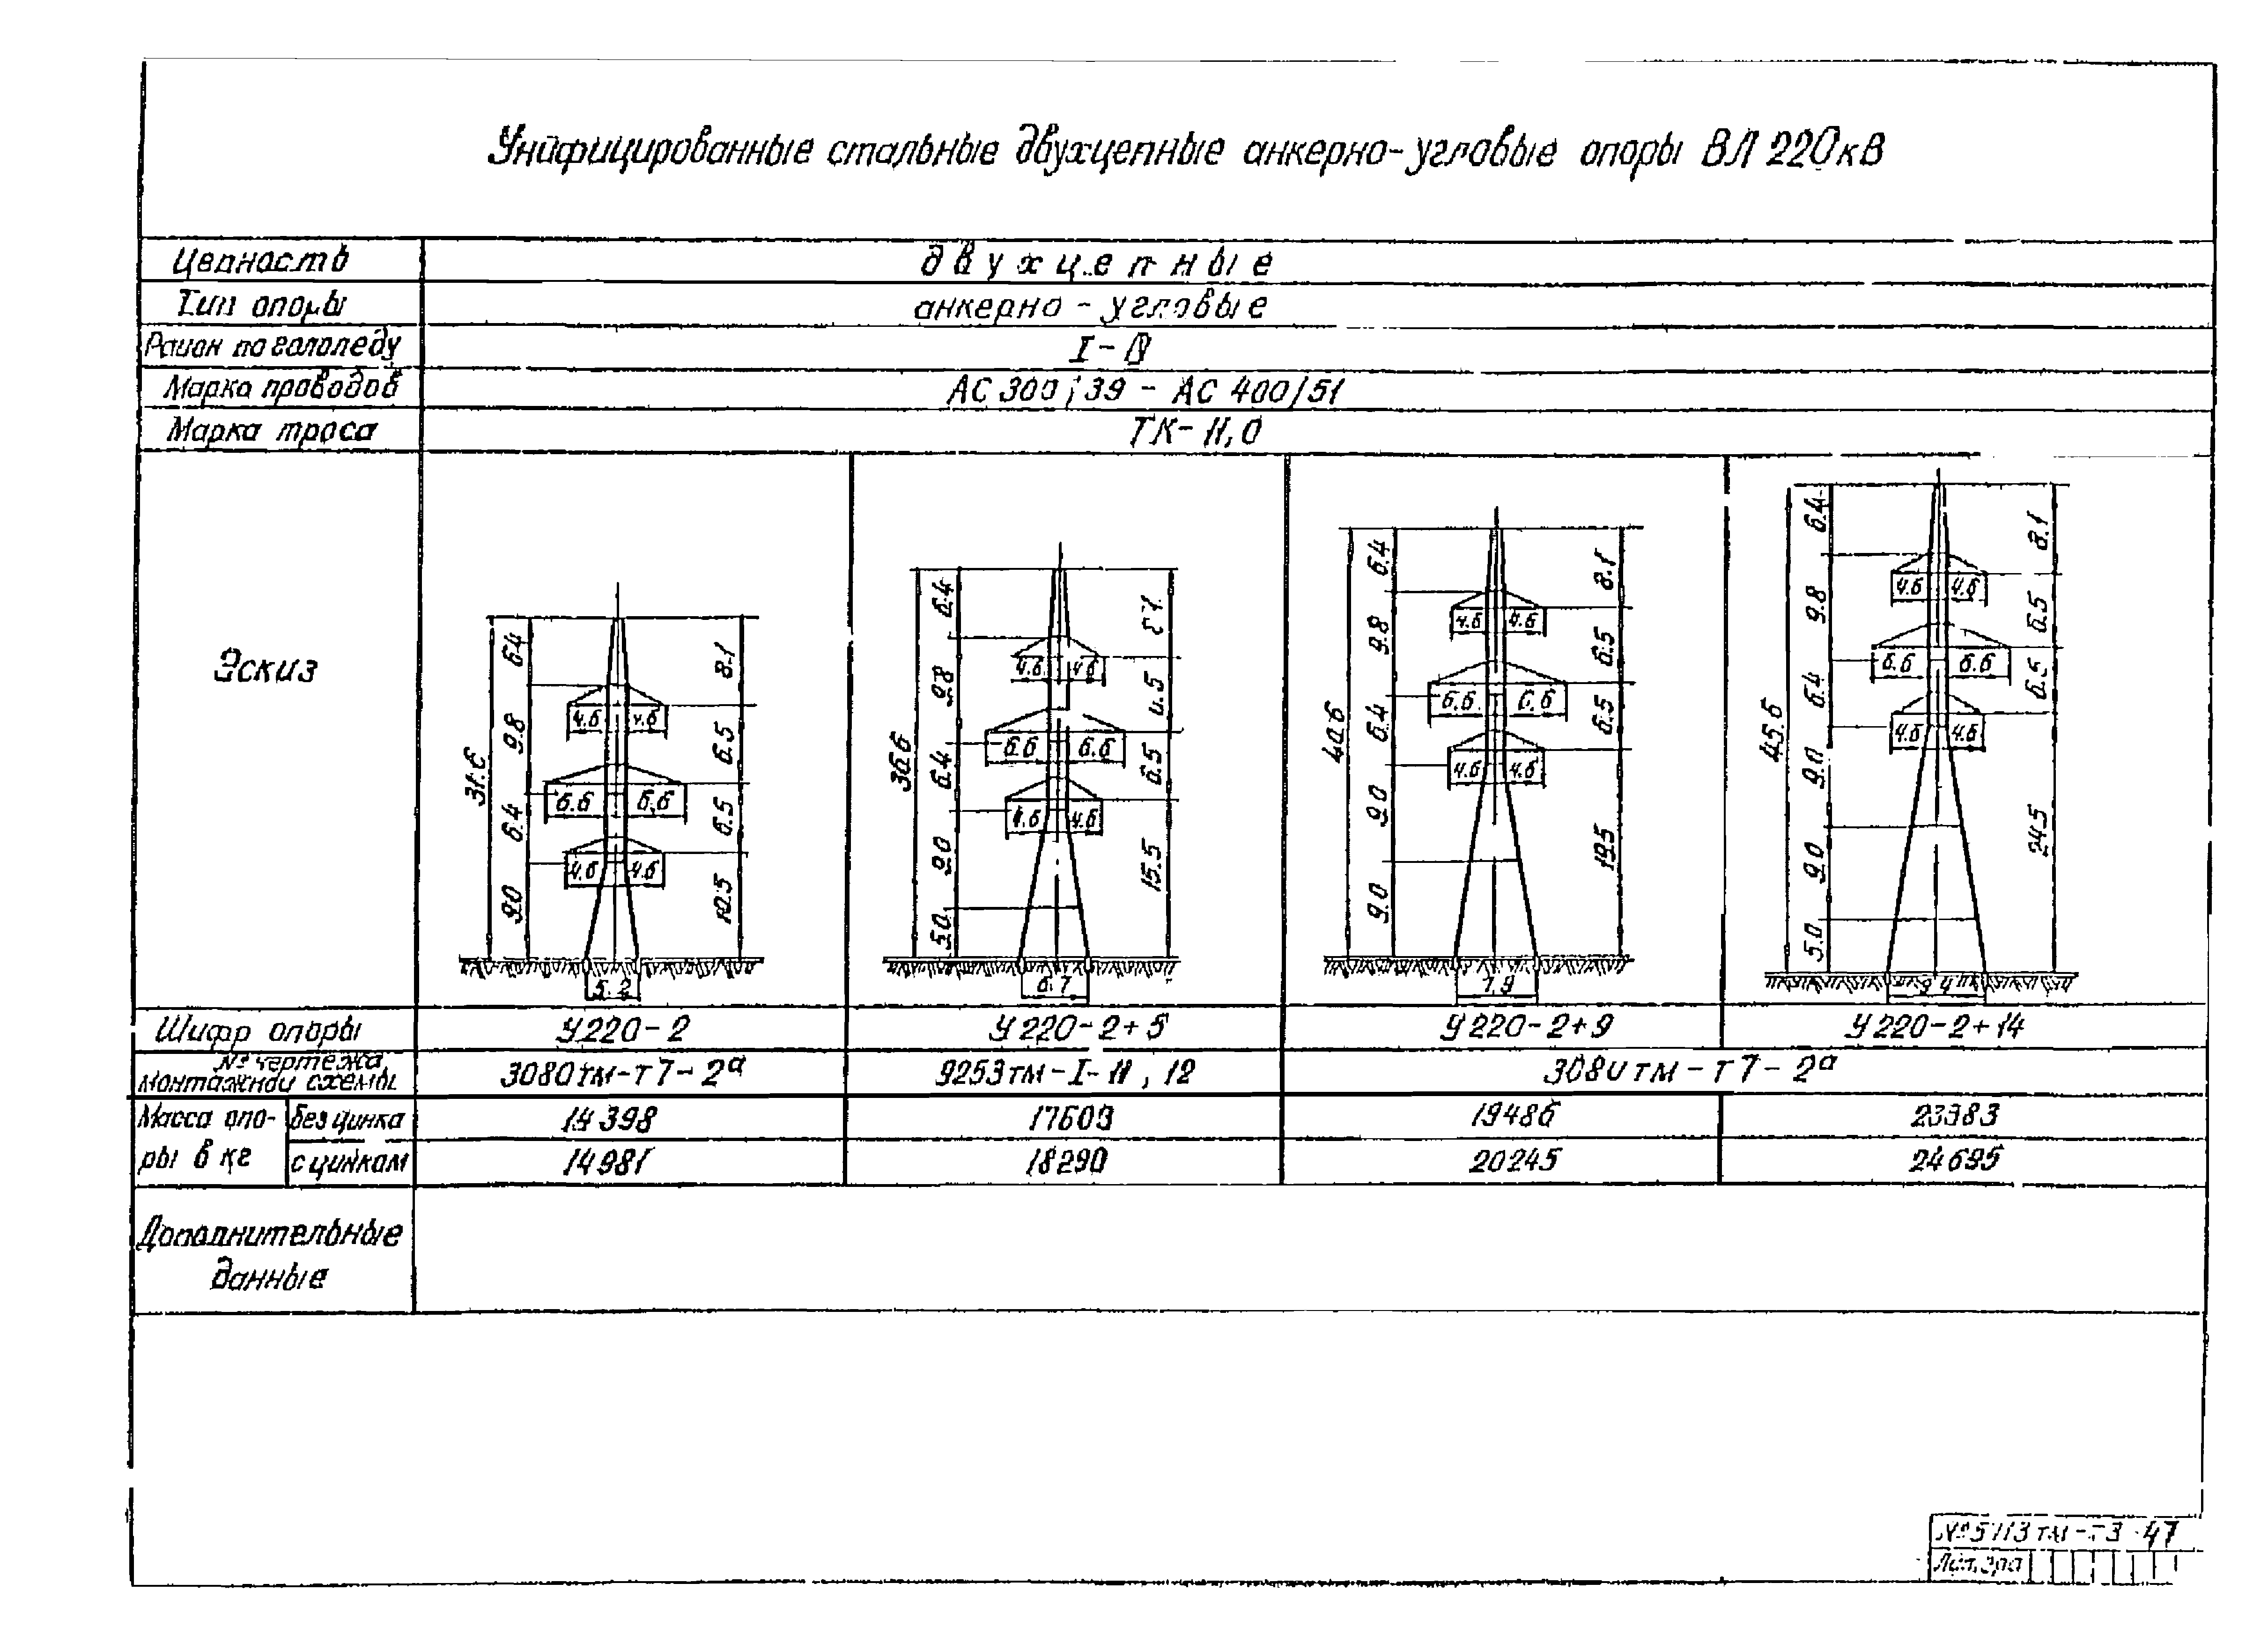 Унифицированные стальные двухцепные анкерно-угловые опоры ВЛ 220кВ
Цепность двухцепные
Тип опоры анкерно-угловые
Район по гололеду I-IV
Марка проводов АС 300/39 - АС 400/51
Марка троса ТК-11,0
Эскиз
31.6 6.4 9.8 6.4 9.0 4.6 4.6 6.6 6.6 4.6 4.6 8.1 6.5 6.5 10.5 5.2
36.6 6.4 9.8 6.4 9.0 5.0 4.6 4.6 6.6 6.6 4.6 4.6 6.5 15.5 6.7
40.6 6.4 9.8 6.4 9.0 9.0 4.6 4.6 6.6 6.6 4.6 4.6 8.1 6.5 6.5 19.5 7.9
45.6 6.4 9.8 6.4 9.0 9.0 5.0 4.6 4.6 6.6 6.6 4.6 4.6 8.1 6.5 6.5 24.5 9.4
Шифр опоры У220-2 У220-2+5 У220-2+9 У220-2+14
№ чертежа
монтажной схемы 3080тм-Т7-2а 9253тм-I-11, 12 3080тм-Т7-2а
Масса опо- без цинка 14398 17609 19486
ры в кг с цинком 14981 18290 20245 24695
Дополнительные
данные
47